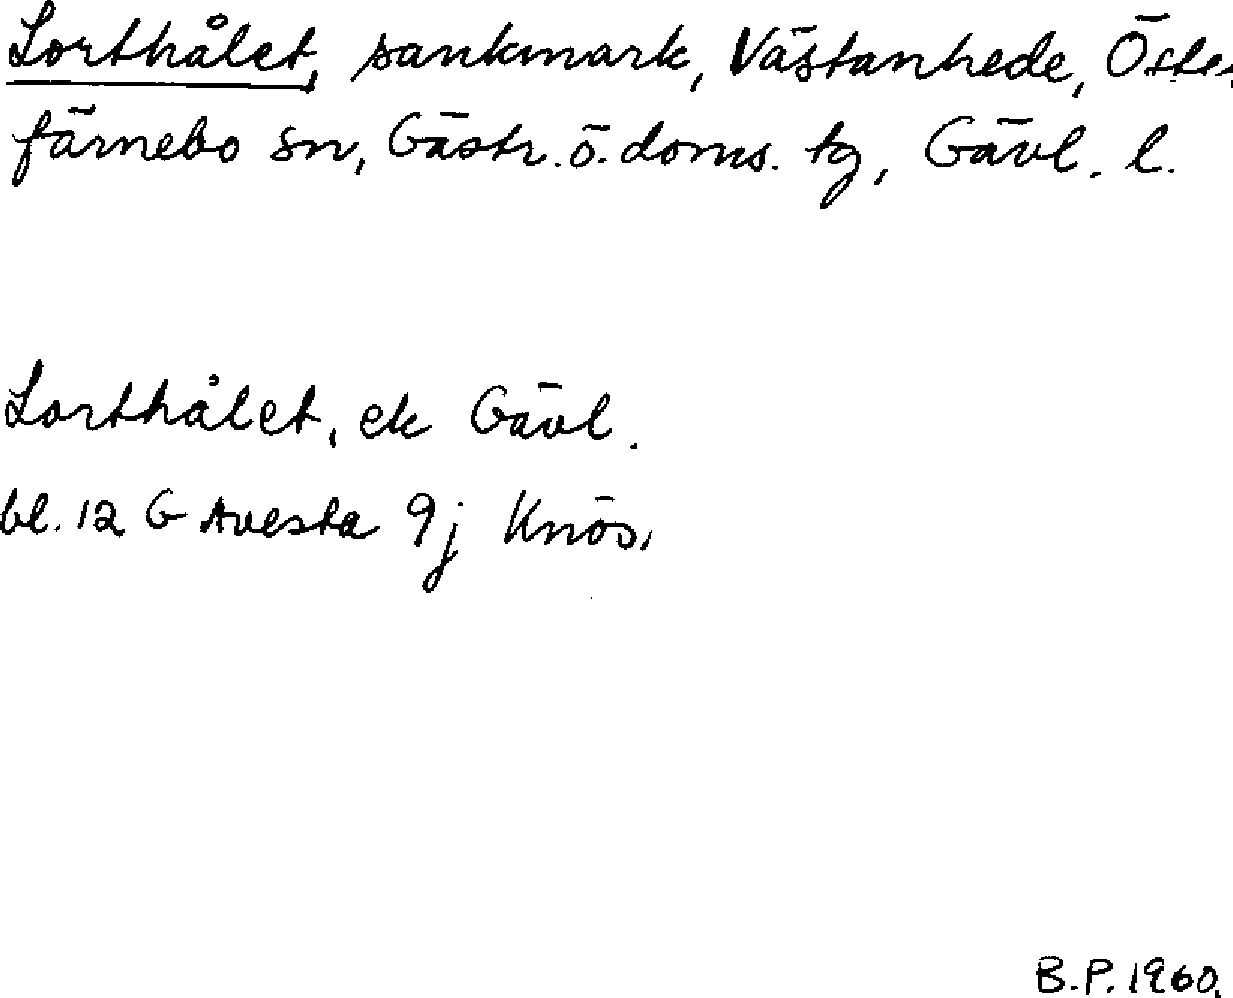 Lorthålet, sankmark, Västanhede, Öster
färnebo sn, Gästr. ö. doms. tg, Gävl. l.
Lorthålet, ek Gävl.
bl. 12 G Avesta 9j Knös.
B.P. 1960.